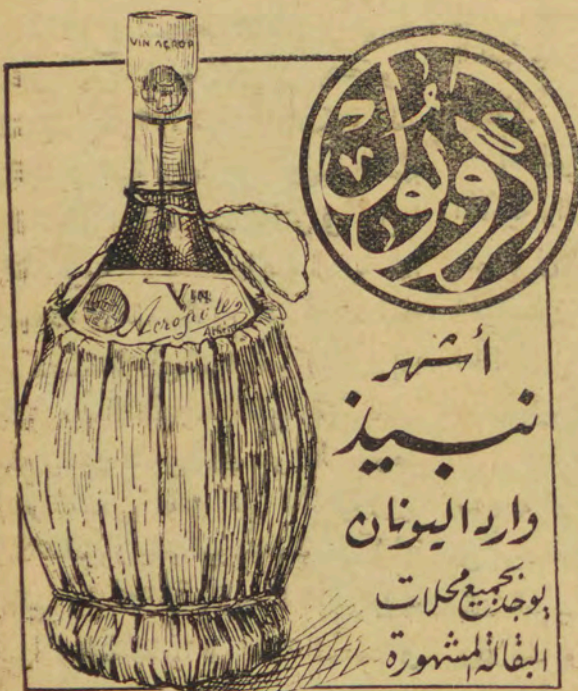 أكروبول
VIN ACROP
Vin
Acropole
أشهر
نبيذ
وارد اليونان
يوجد بجميع محلات
البقالة المشهورة